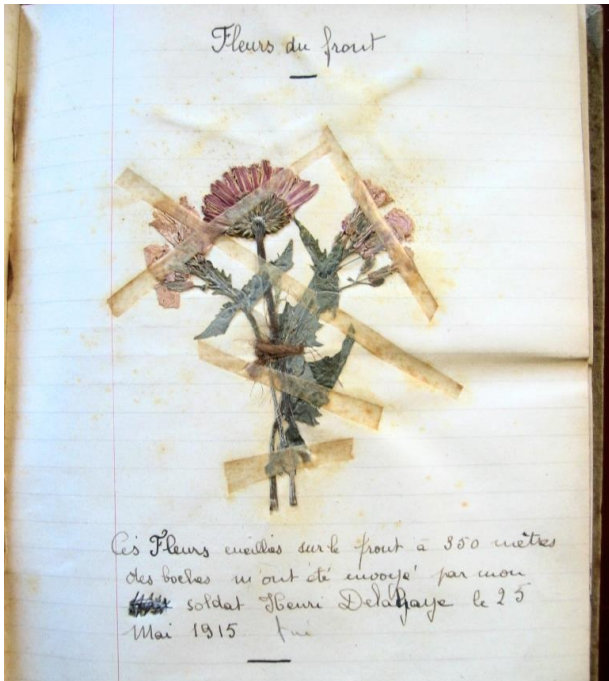 Fleurs du front
Ces Fleurs cueillies sur le front à 350 mètres
des boches m'ont été envoyé par mon
soldat Henri Delahaye le 25
Mai 1915 tué